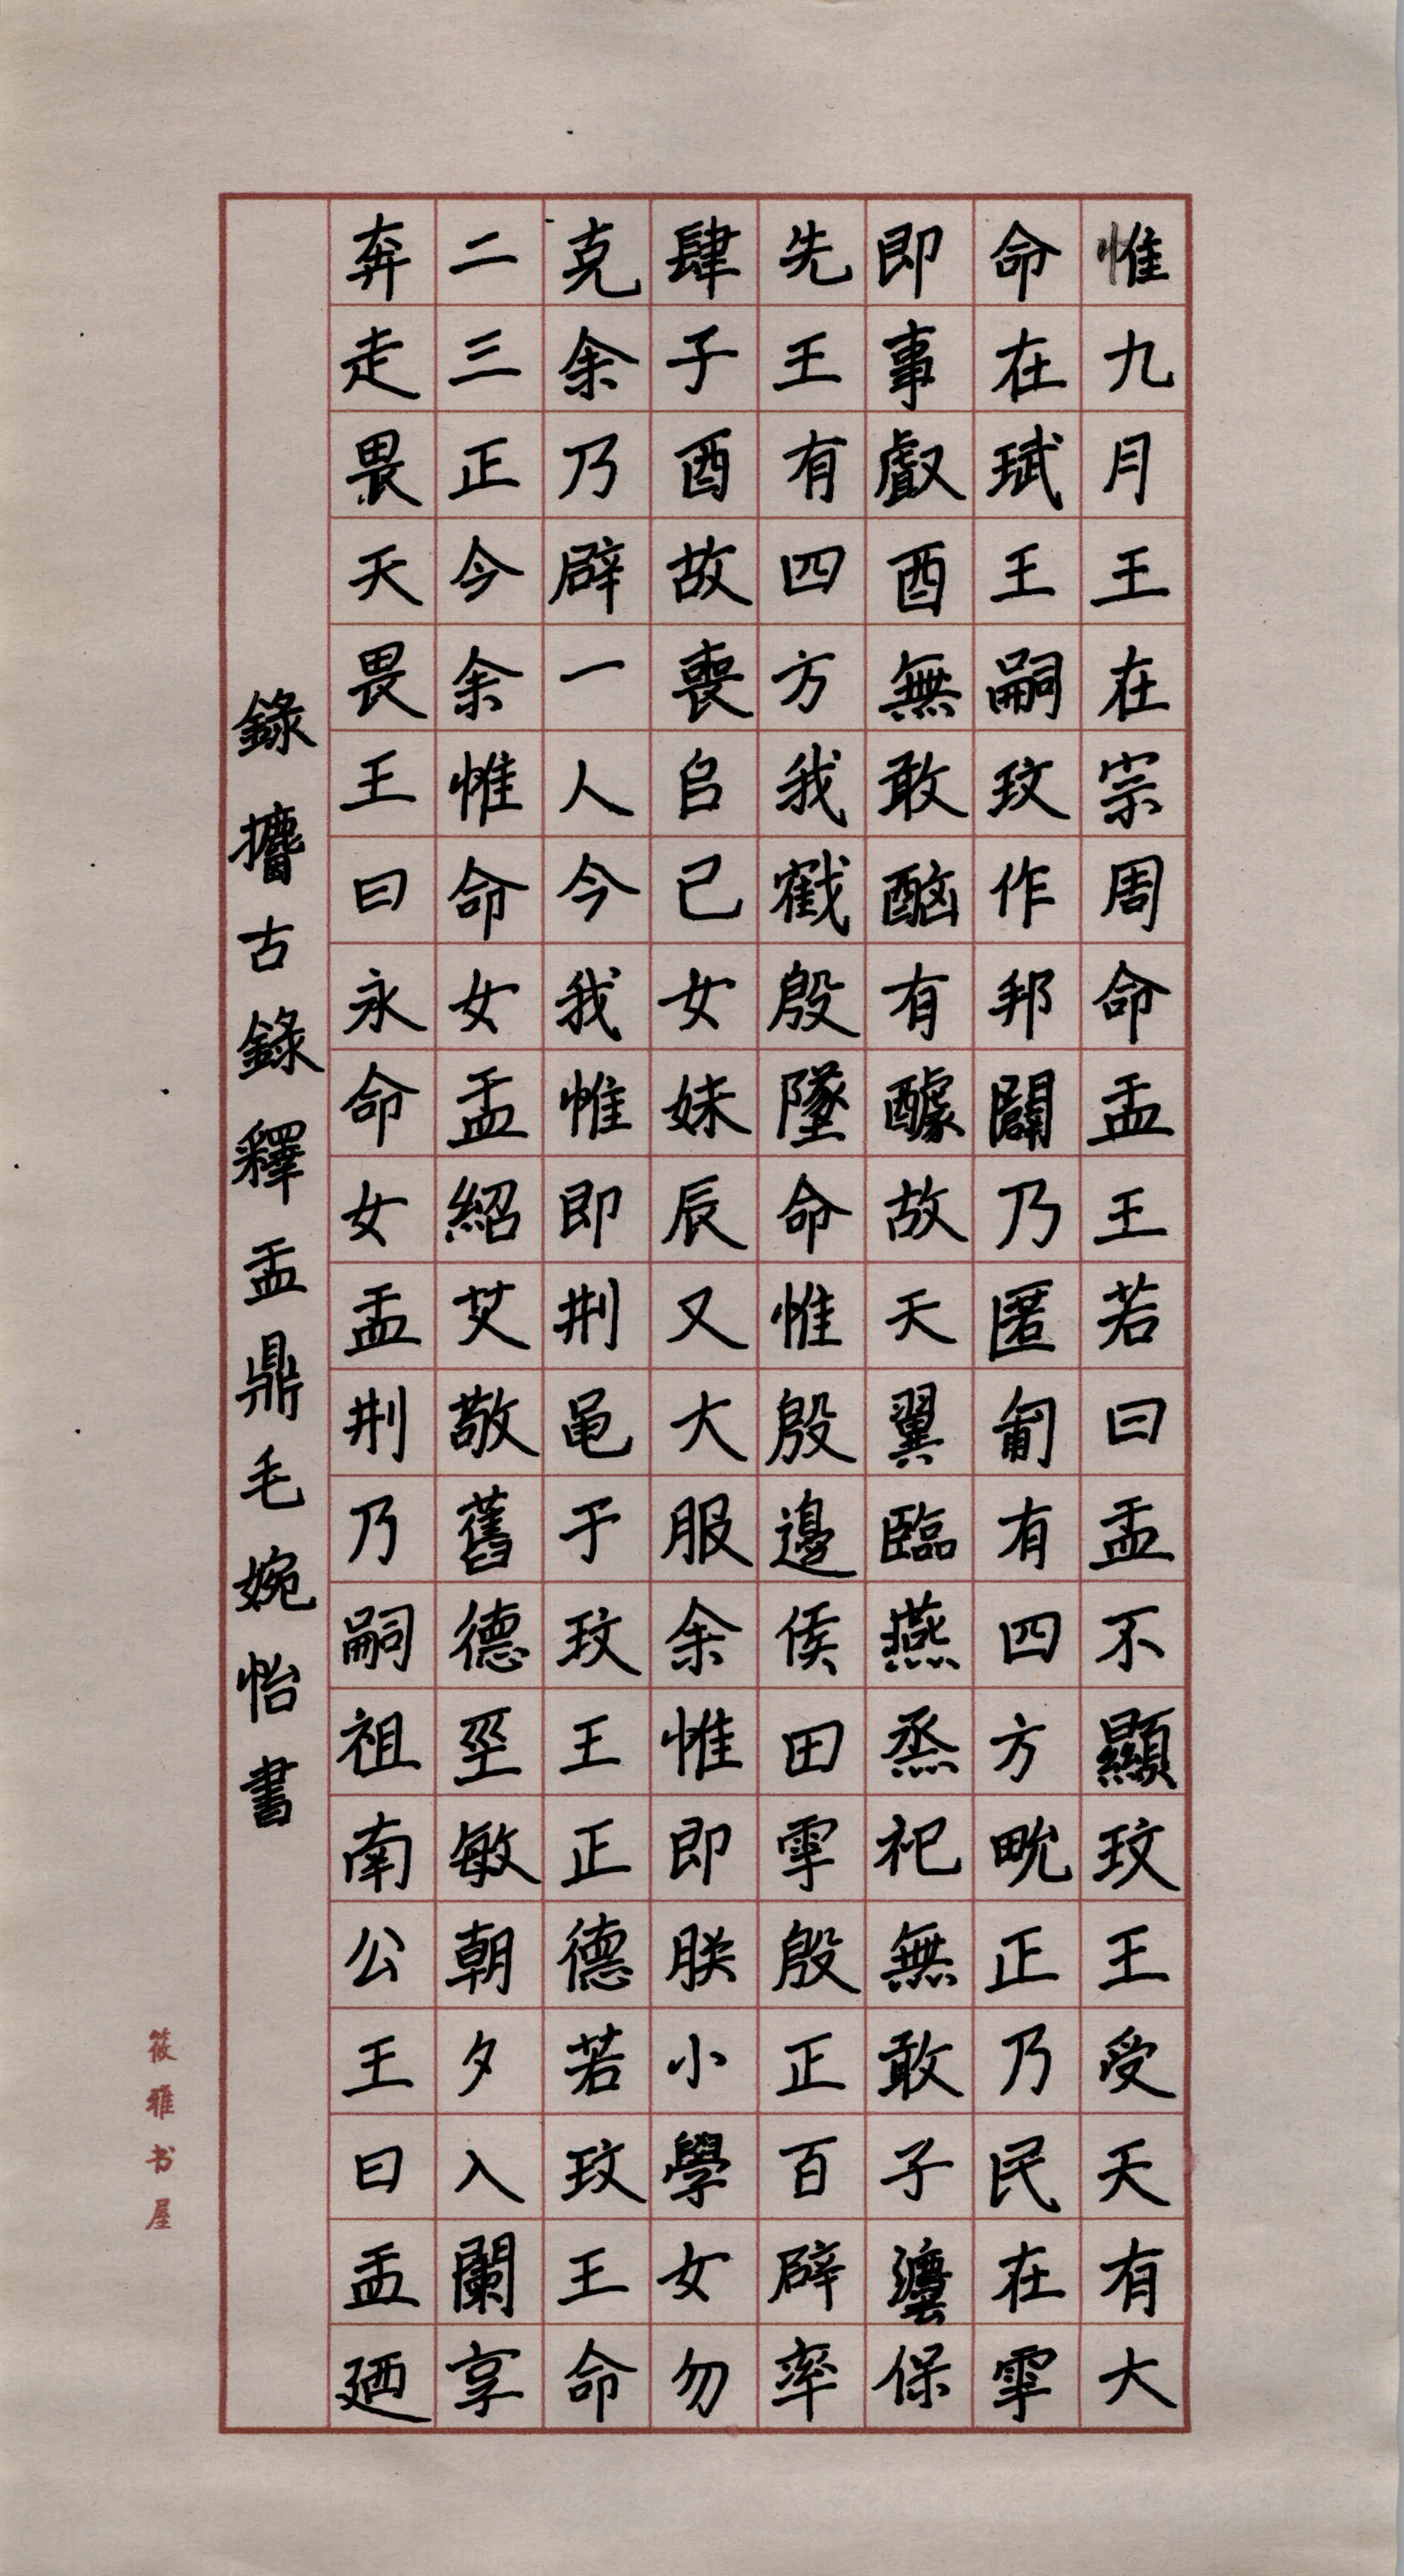 惟九月王在宗周命盂王若曰盂不顯玟王受天有大
命在珷王嗣玟作邦闢乃匿匍有四方畍正乃民在雩
即事䱷酉無敢酗有醵故天翼臨燕烝祀無敢子灋保
先王有四方我戳殷墜命惟殷邊侯田雩殷正百辟率
肆子酉故喪㠯已女妹辰又大服余惟即朕小學女勿
克余乃辟一人今我惟即荆黽于玟王正德若玟王命
二三正今余惟命女盂紹艾敬舊德巠敏朝夕入闌享
奔走畏天畏王曰永命女盂荆乃嗣祖南公王曰盂廼
錄攈古錄釋盂鼎毛婉怡書
筱雅书屋